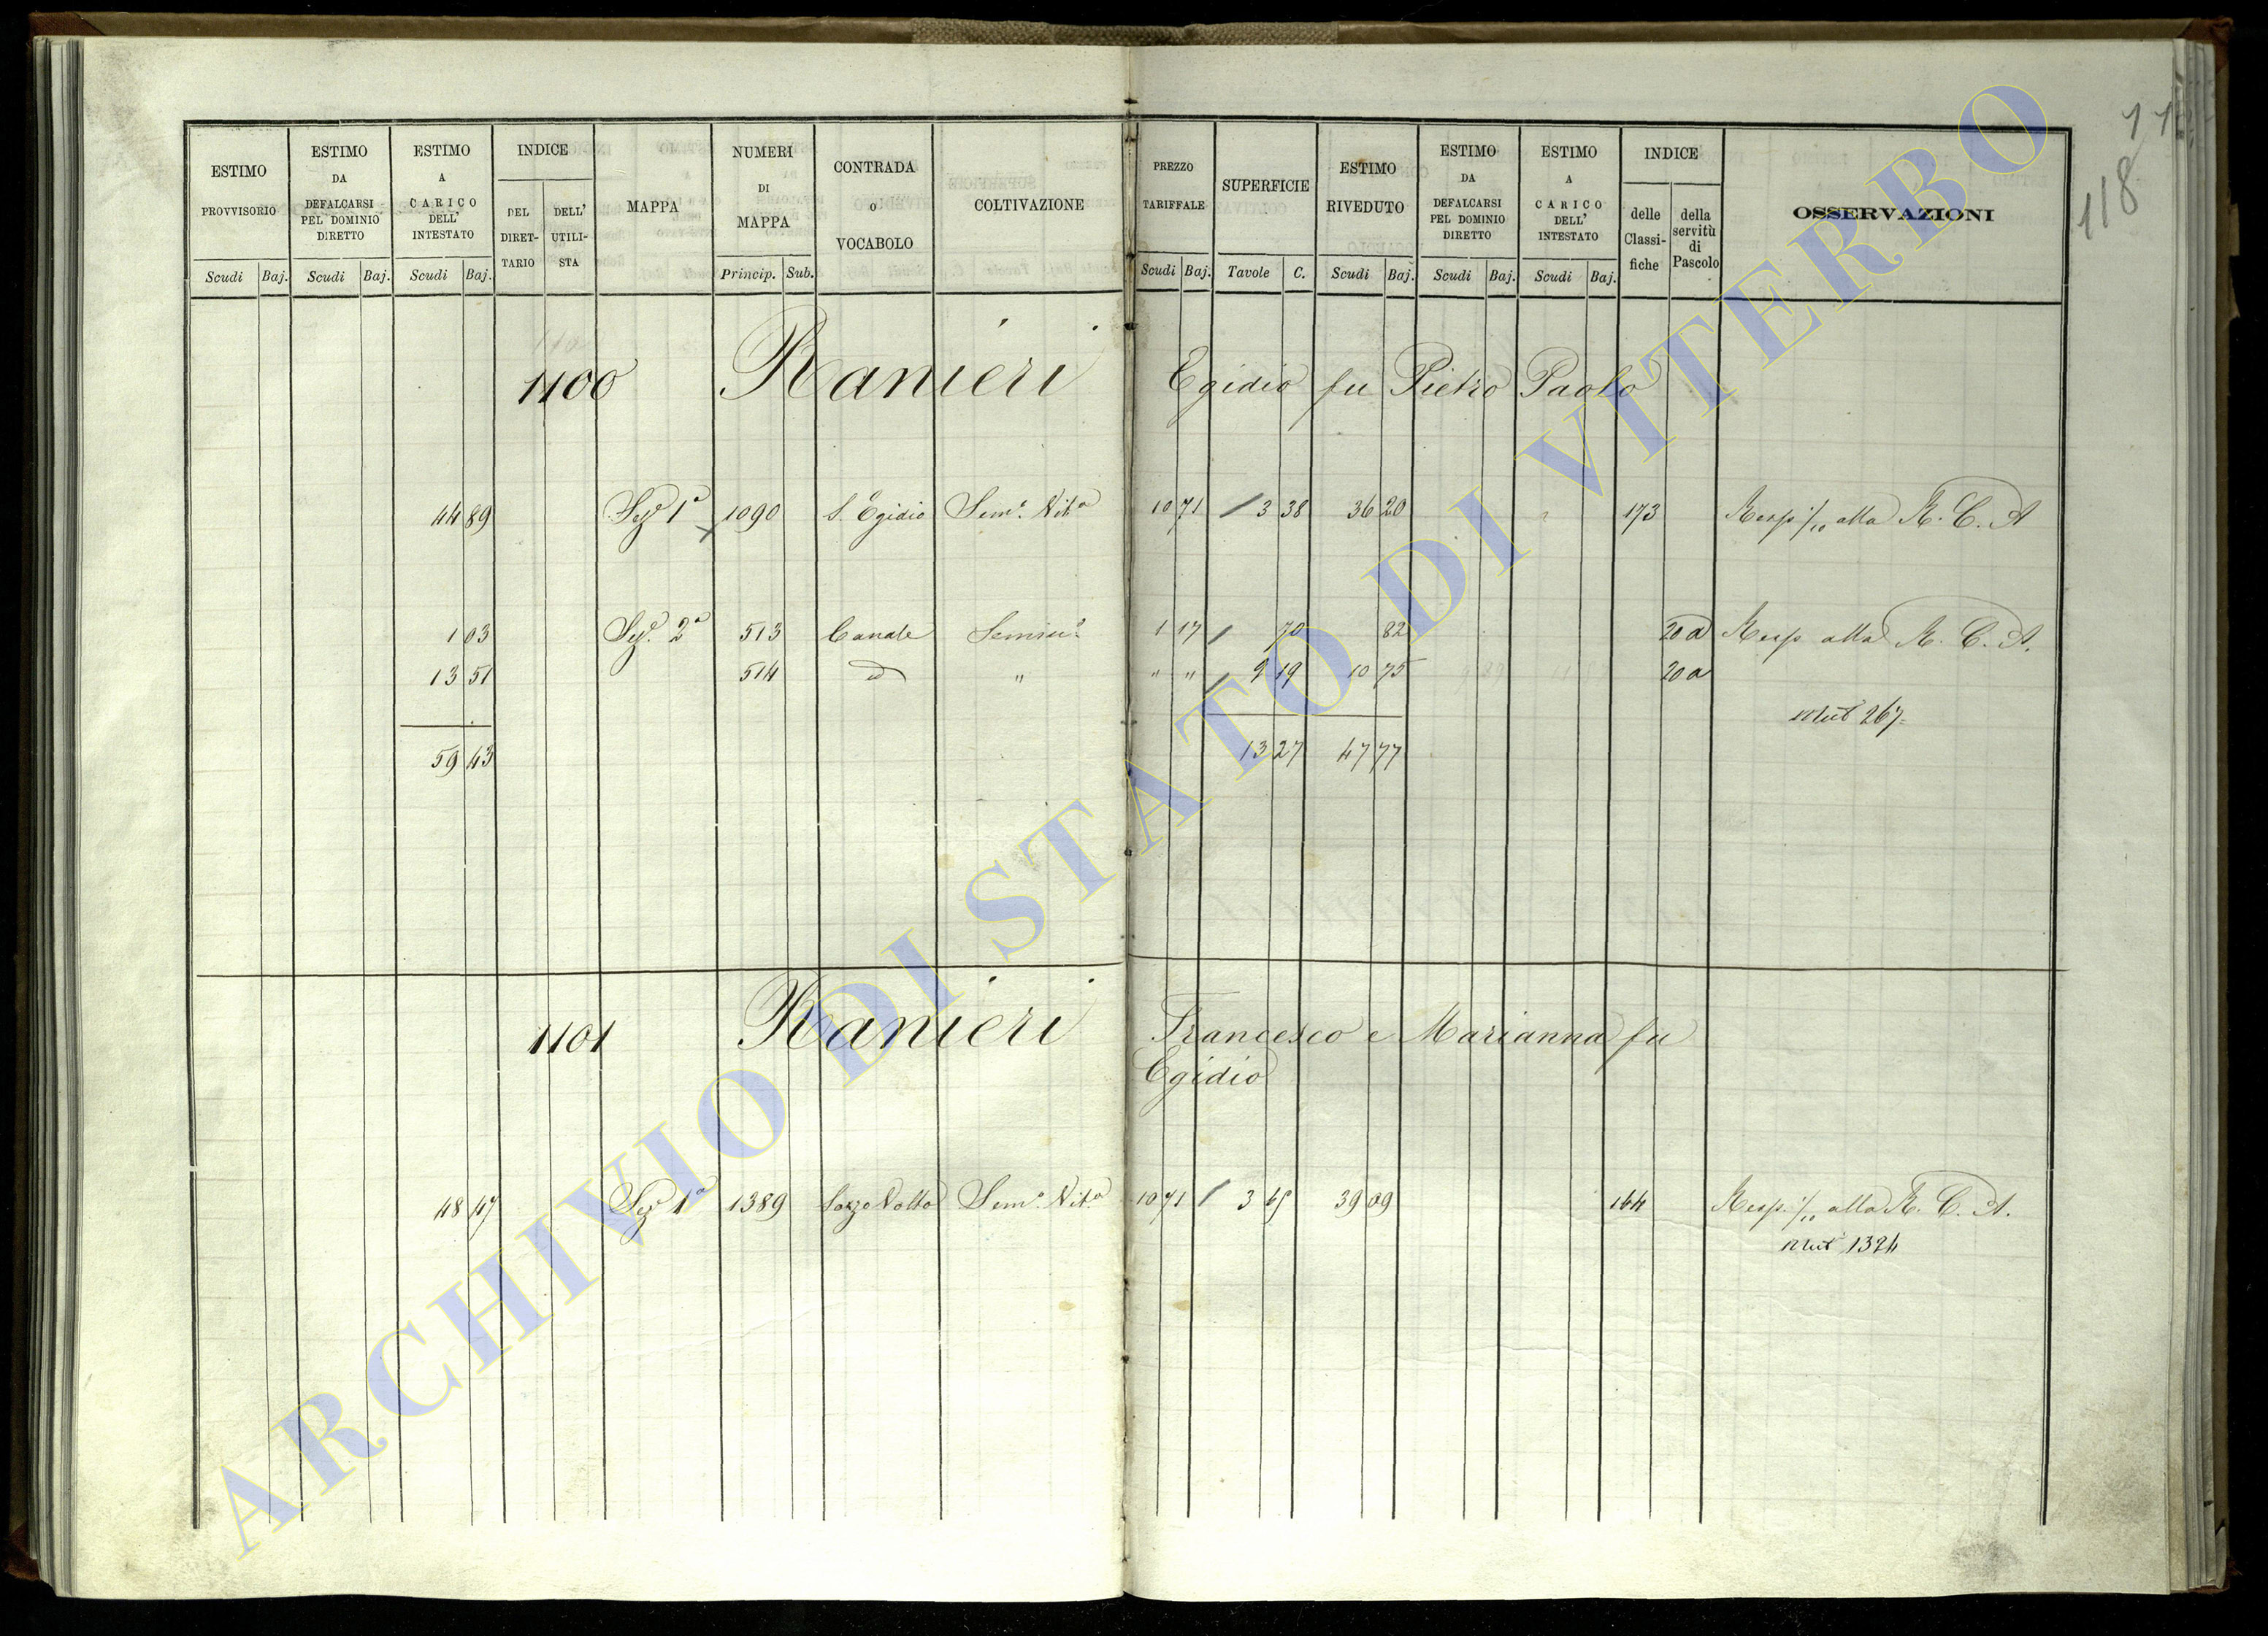 ESTIMO PROVVISORIO
Scudi Baj.
ESTIMO DA DEFALCARSI PEL DOMINIO DIRETTO
Scudi Baj.
ESTIMO A CARICO DELL' INTESTATO
Scudi Baj.
INDICE
DEL DIRET-TARIO
DELL' UTILI-STA
MAPPA
NUMERI DI MAPPA
Princip. Sub.
CONTRADA o VOCABOLO
COLTIVAZIONE
PREZZO TARIFFALE
Scudi Baj.
SUPERFICIE
Tavole C.
ESTIMO RIVEDUTO
Scudi Baj.
ESTIMO DA DEFALCARSI PEL DOMINIO DIRETTO
Scudi Baj.
ESTIMO A CARICO DELL' INTESTATO
Scudi Baj.
INDICE
delle Classi-fiche
della servitù di Pascolo
OSSERVAZIONI
118
1100 Ranieri Egidio fu Pietro Paolo
44 89 Sez.e 1a 1090 S. Egidio Sem.o Vit.o 10 71 3 38 36 20 173 Resp. 1/10 alla R. C. A
1 03 Sez.e 2a 513 Canale Semin.o 1 17 70 82 20 a Resp alla R. C. A.
13 51 514 d " " " 9 19 10 75 20 a
Mut 267
59 43 13 27 47 77
1101 Ranieri Francesco e Marianna fu
Egidio
48 47 Sez.e 1a 1389 Sozzo Volto Sem.o Vit.o 10 71 3 65 39 09 164 Resp. 1/10 alla R. C. A.
Mut 1324
ARCHIVIO DI STATO DI VITERBO